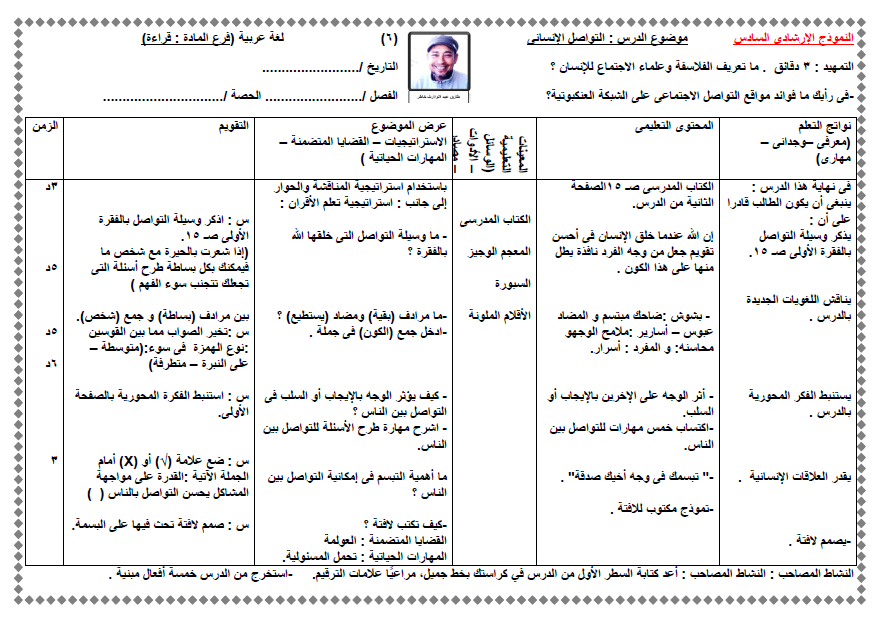 النموذج الإرشادى السادس
موضوع الدرس : التواصل الإنسانى
(٦)
لغة عربية (فرع المادة : قراءة)
التمهيد : ٣ دقائق . ما تعريف الفلاسفة وعلماء الاجتماع للإنسان ؟
التاريخ /.........................
-فى رأيك ما فوائد مواقع التواصل الاجتماعى على الشبكة العنكبوتية؟
الفصل /......................... الحصة /...............................
نواتج التعلم
(معرفى –وجدانى –
مهارى)
المحتوى التعليمى
المعينات
التعليمية
(الوسائل
– الأدوات
– مصادر
عرض الموضوع
الاستراتيجيات – القضايا المتضمنة –
المهارات الحياتية )
التقويم
الزمن
فى نهاية هذا الدرس :
ينبغى أن يكون الطالب قادرا
على أن :
يذكر وسيلة التواصل
بالفقرة الأولى صـ ١٥.
يناقش اللغويات الجديدة
بالدرس .
يستنبط الفكر المحورية
بالدرس .
يقدر العلاقات الإنسانية .
-يصمم لافتة .
الكتاب المدرسى صـ ١٥الصفحة
الثانية من الدرس.
إن الله عندما خلق الإنسان فى أحسن
تقويم جعل من وجه الفرد نافذة يطل
منها على هذا الكون .
- بشوش :ضاحك مبتسم و المضاد
عبوس – أسارير :ملامح الوجهو
محاسنه: و المفرد : أسرار.
- أثر الوجه على الإخرين بالإيجاب أو
السلب.
-اكتساب خمس مهارات للتواصل بين
الناس.
-" تبسمك فى وجه أخيك صدقة" .
-نموذج مكتوب للافتة .
الكتاب المدرسى
المعجم الوجيز
السبورة
الأقلام الملونة
باستخدام استراتيجية المناقشة والحوار
إلى جانب : استراتيجية تعلم الأقران :
- ما وسيلة التواصل التى خلقها الله
بالفقرة ؟
-ما مرادف (بقية) ومضاد (يستطيع) ؟
-ادخل جمع (الكون) فى جملة .
- كيف يؤثر الوجه بالإيجاب أو السلب فى
التواصل بين الناس ؟
- اشرح مهارة طرح الأسئلة للتواصل بين
الناس.
ما أهمية التبسم فى إمكانية التواصل بين
الناس ؟
-كيف تكتب لافتة ؟
القضايا المتضمنة : العولمة
المهارات الحياتية : تحمل المسئولية.
س : اذكر وسيلة التواصل بالفقرة
الأولى صـ ١٥.
(إذا شعرت بالحيرة مع شخص ما
فيمكنك بكل بساطة طرح أسئلة التى
تجعلك تتجنب سوء الفهم )
بين مرادف (بساطة) و جمع (شخص).
س :تخير الصواب مما بين القوسين
:نوع الهمزة فى سوء:(متوسطة –
على النبرة – متطرفة)
س : استنبط الفكرة المحورية بالصفحة
الأولى.
س : ضع علامة (√) أو (X) أمام
الجملة الآتية :القدرة على مواجهة
المشاكل يحسن التواصل بالناس ( )
س : صمم لافتة تحث فيها على البسمة.
٣د
٥د
٥د
٦د
٣
النشاط المصاحب : النشاط المصاحب : أعد كتابة السطر الأول من الدرس في كراستك بخط جميل، مراعيًا علامات الترقيم. -استخرج من الدرس خمسة أفعال مبنية .